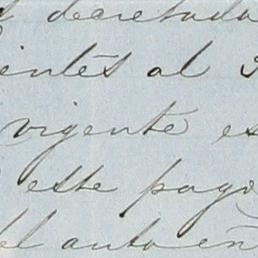 decretada
ientes al 3
vigente es
este pago
el auto en